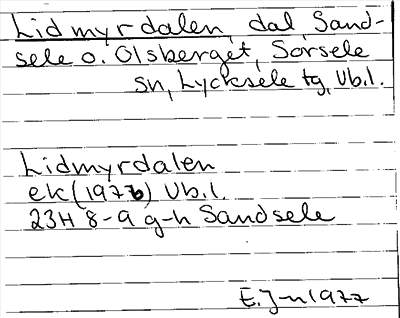 Lidmyrdalen, dal, Sand-
sele o. Olsberget, Sorsele
sn, Lycksele tg, Vb.l.
Lidmyrdalen
ek (1976) Vb.l.
23H 8-9 g-h Sandsele
E.J-n 1977